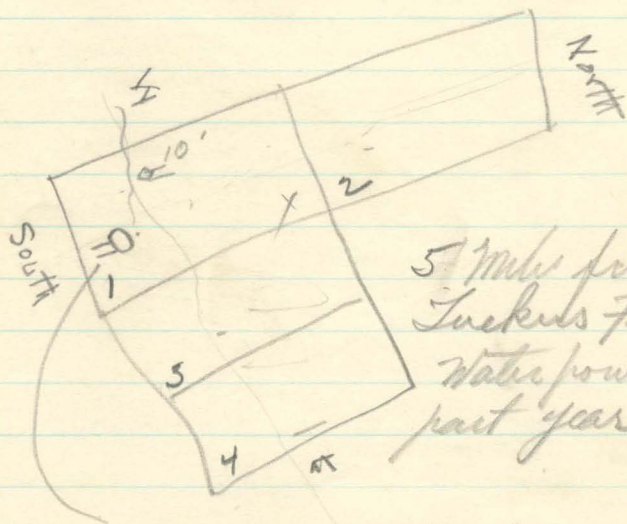 North
10'
2
South
1
5 Mile fr
Tuckers F
Water pow
part year
3
4